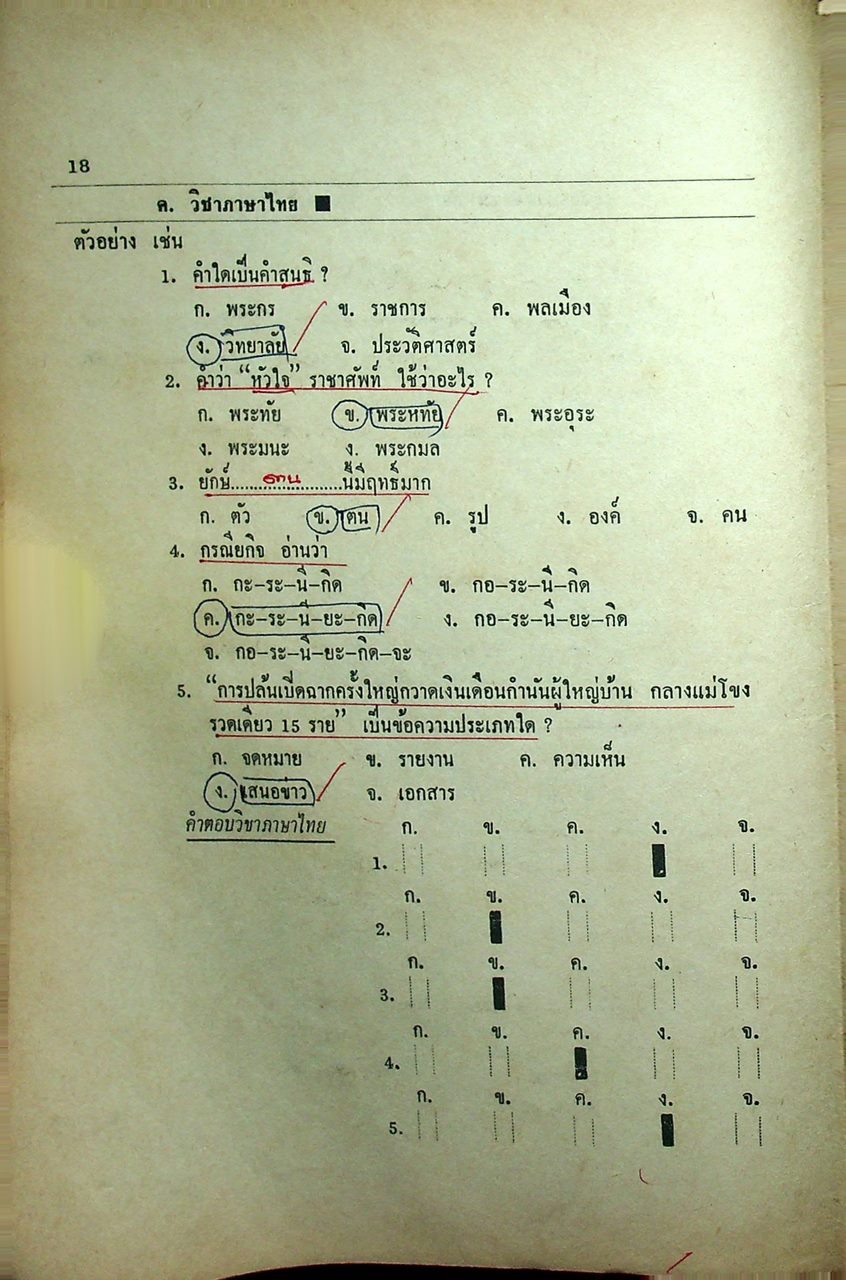 18
ค. วิชาภาษาไทย ■
ตัวอย่าง เช่น
1. คำใดเป็นคำสนธิ ?
ก. พระกร ข. ราชการ ค. พลเมือง
ง. วิทยาลัย จ. ประวัติศาสตร์
2. คำว่า “หัวใจ” ราชาศัพท์ ใช้ว่าอะไร ?
ก. พระทัย ข. พระหทัย ค. พระอุระ
ง. พระมนะ ง. พระกมล
3. ยักษ์......ตน......นี้มีฤทธิ์มาก
ก. ตัว ข. ตน ค. รูป ง. องค์ จ. คน
4. กรณียกิจ อ่านว่า
ก. กะ-ระ-นี-กิด ข. กอ-ระ-นี-กิด
ค. กะ-ระ-นี-ยะ-กิด ง. กอ-ระ-นี-ยะ-กิด
จ. กอ-ระ-นี-ยะ-กิด-จะ
5. “การปล้นเบิดฉากครั้งใหญ่กวาดเงินเดือนกำนันผู้ใหญ่บ้าน กลางแม่โขง
รวดเดียว 15 ราย” เป็นข้อความประเภทใด ?
ก. จดหมาย ข. รายงาน ค. ความเห็น
ง. เสนอข่าว จ. เอกสาร
คำตอบวิชาภาษาไทย ก. ข. ค. ง. จ.
1.
ก. ข. ค. ง. จ.
2.
ก. ข. ค. ง. จ.
3.
ก. ข. ค. ง. จ.
4.
ก. ข. ค. ง. จ.
5.